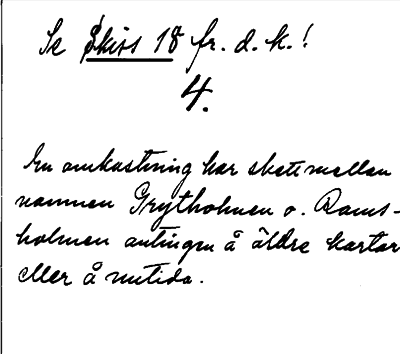 Se Skiss 18 fr. d. k.!
4.
En omkastning har skett mellan
namnen Grytholmen o. Rams-
holmen antingen å äldre kartor
eller å nutida.